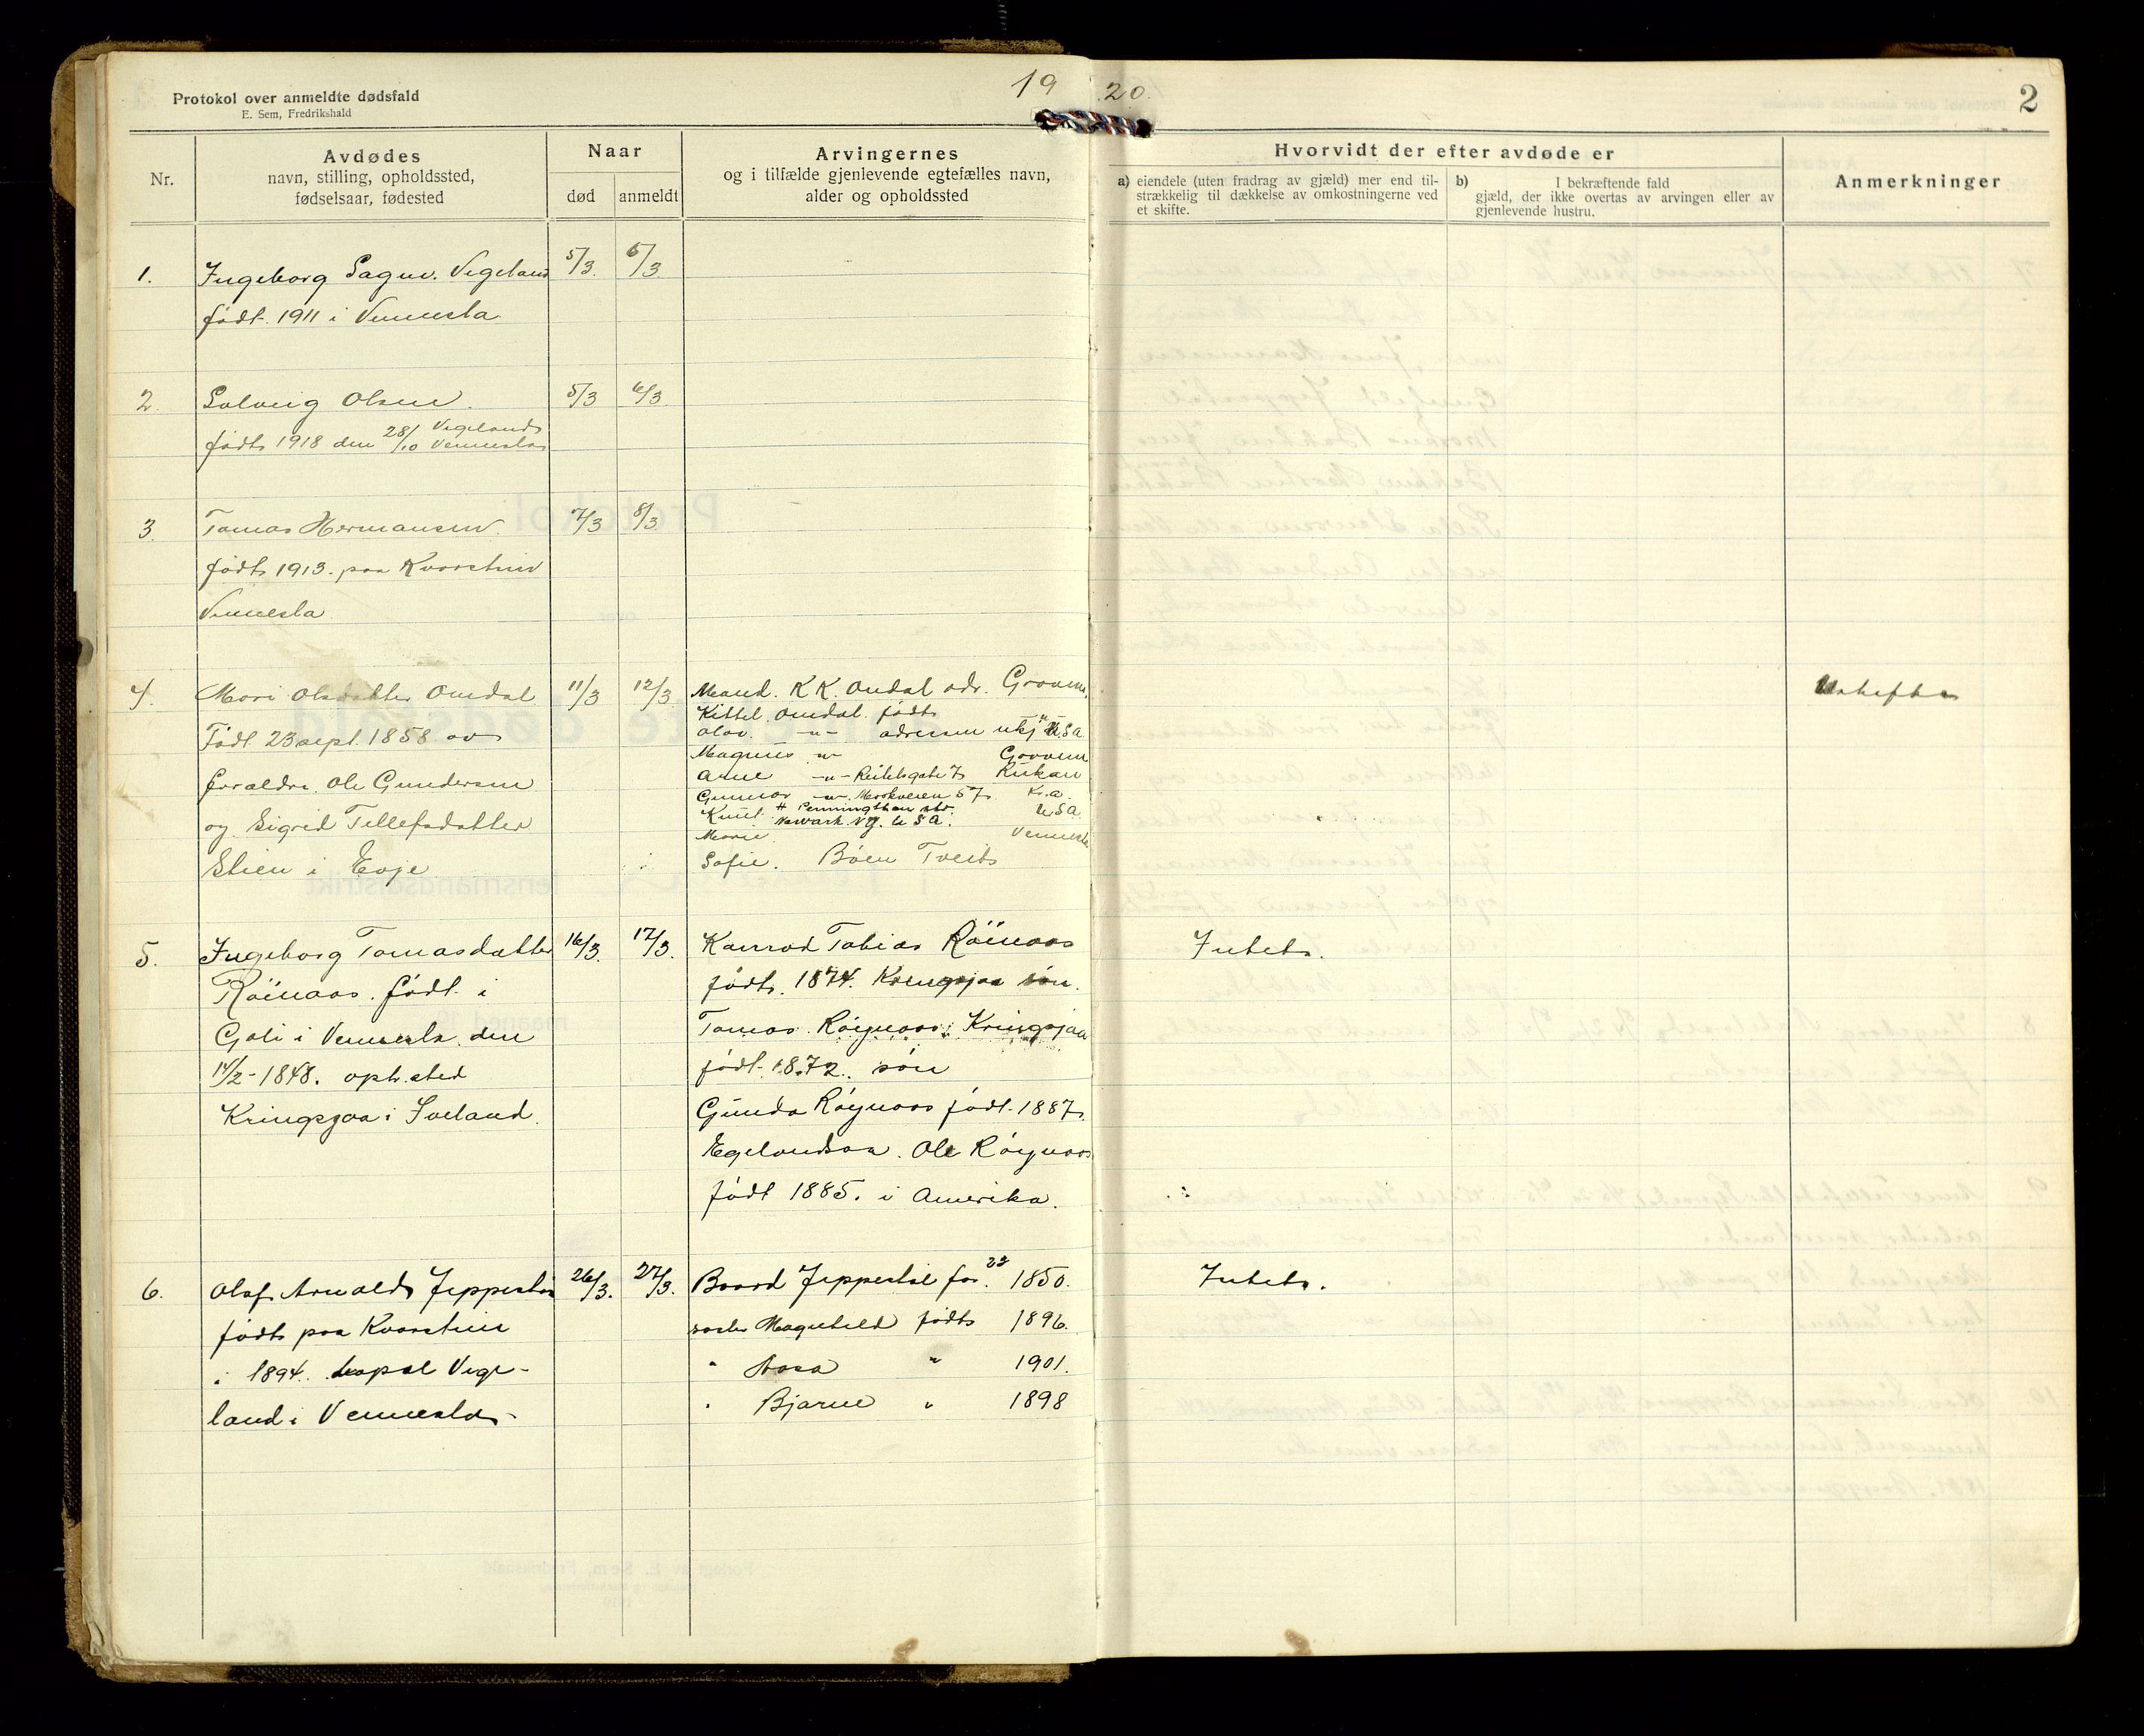 19 20.
2
Protokol over anmeldte dødsfald
E. Sem, Fredrikshald
Nr.
Avdødes
navn, stilling, opholdssted,
fødselsaar, fødested
Naar
død
anmeldt
Arvingernes
og i tilfælde gjenlevende egtefælles navn,
alder og opholdssted
Hvorvidt der efter avdøde er
a) eiendele (uten fradrag av gjæld) mer end til-
strækkelig til dækkelse av omkostningerne ved
et skifte.
b) I bekræftende fald
gjæld, der ikke overtas av arvingen eller av
gjenlevende hustru.
Anmerkninger
1. Ingeborg Vegeland 5/3. 6/3
født 1911 i Vennesla
2. Solveig Olsen. 5/3 6/3
født 1918 den 28/10 Vegeland
Vennesla
3. Tomas Hermansen. 7/3 8/3
født 1913. paa Kvarstein
Vennesla
4. Mari Olsdatter Omdal 11/3 12/3
Født 23 sept. 1858 av
foraeldre. Ole Gundersen
og Sigrid Tellefsdatter
i Evje
Mand. K K. Omdal adr. Groven.
Kittel. Omdal. født
Olav. -"- adressen ukj. USA
Magnus -"- Groven
Arne -"- 7 Rukan
Gunnar -"- 57. Kr.a.
Knut # Penningthon str. USA
Newark. U S A.
Marie. Vennesla
Sofie. Bøen Tveit
5. Ingeborg Tomasdatter 16/3. 17/3.
Røinaas. født i
i Vennesla. den
1848. oph. sted
Kringsjaa i Iveland.
Konrad Tobias Røinaas Intet.
født. 1874. Kringsjaa søn.
Tomas. Røynaas. Kringsjaa
født 1872. søn
Gunda Røynaas født 1887.
Egelandsaa. Ole Røynaas
født 1885. i Amerika.
6. Olaf Arnold Jeppestøl 26/3. 27/3. Baard Jeppestøl far. 1850. Intet.
født paa Kvarstein
i 1894. Vege-
land i Vennesla.
søster Magnhild født 1896.
" Aasa " 1901.
" Bjarne " 1898